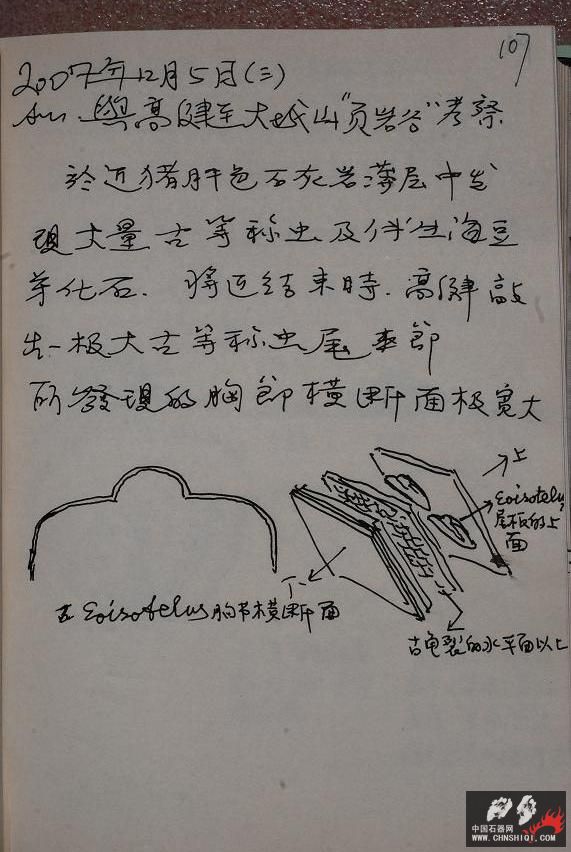 107
2007年12月5日(三)
Am. 與高健至大城山“页岩谷”考察
於近猪肝色石灰岩薄层中发
現大量古等称虫及伴生海豆
芽化石. 將近结束時.高健敲
出一极大古等称虫尾
節
所發現的胸節橫断面极宽大
上
Eoisotelus
尾板的上
面
下
古Eoisotelus胸节横断面
古龟裂的水平面以上
中国石器网
WWW.CHNSHIQI.COM